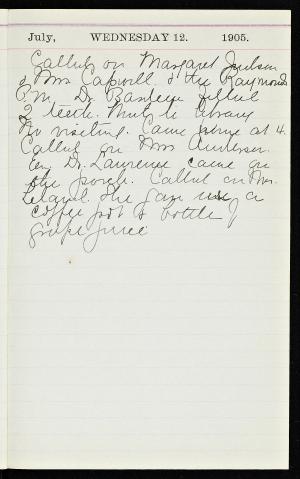 July, WEDNESDAY 12. 1905.
Called on Margaret Judson
& Mrs Capwell & the Raymonds
P.M. Dr. filled
2 teeth. to library
No visiting. Came home at 4.
Called on Mrs Anderson.
Ev. Dr. Lawrence came on
the porch. Called on Mrs.
She gave me a
coffee pot & bottle of
grape juice